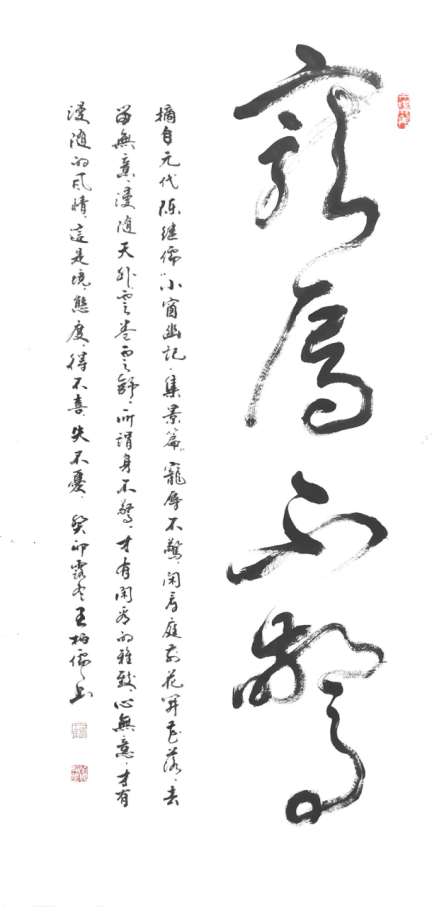 寵辱不驚
摘自元代陈继儒小窗幽记集景篇寵辱不驚闲看庭前花開花落去
留無意漫随天外雲卷雲舒所谓身不驚才有闲看的雅致心無意才有
漫随的风情這是境態度得不喜失不憂癸卯露冬王柏儒书